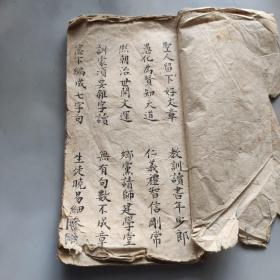 聖人留下好文章
教訓讀書年少郎
愚化為賢知大道
仁義禮智信剛常
熙朝治世開文運
鄉黨請師建學堂
訓蒙須要雜字讀
無有句數不成章
窓下編成七字句
生徒曉易細